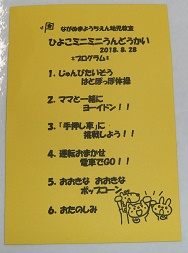 ながぬまようちえん幼児教室
ひよこミニミニうんどうかい
2018.8.28
*プログラム*
1. じゅんびたいそう
はとぽっぽ体操
2. ママと一緒に
ヨーイドン！！
3. 「手押し車」に
挑戦しよう！！
4. 運転おまかせ
電車でGO！！
5. おおきな おおきな
ポップコーン
6. おたのしみ